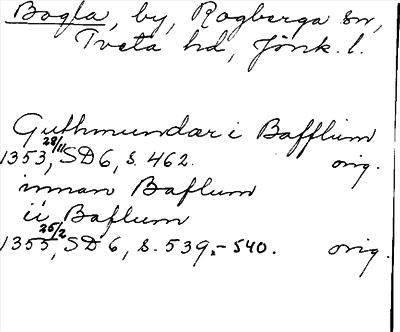 Bogla, by, Rogberga sn,
Tveta hd, Jönk. l.
Guthmundar i Bafflum
1353 28/11, SD 6, s. 462. orig.
innan Baflum
ii Baflum
1355 25/2, SD 6, s. 539-540. orig.